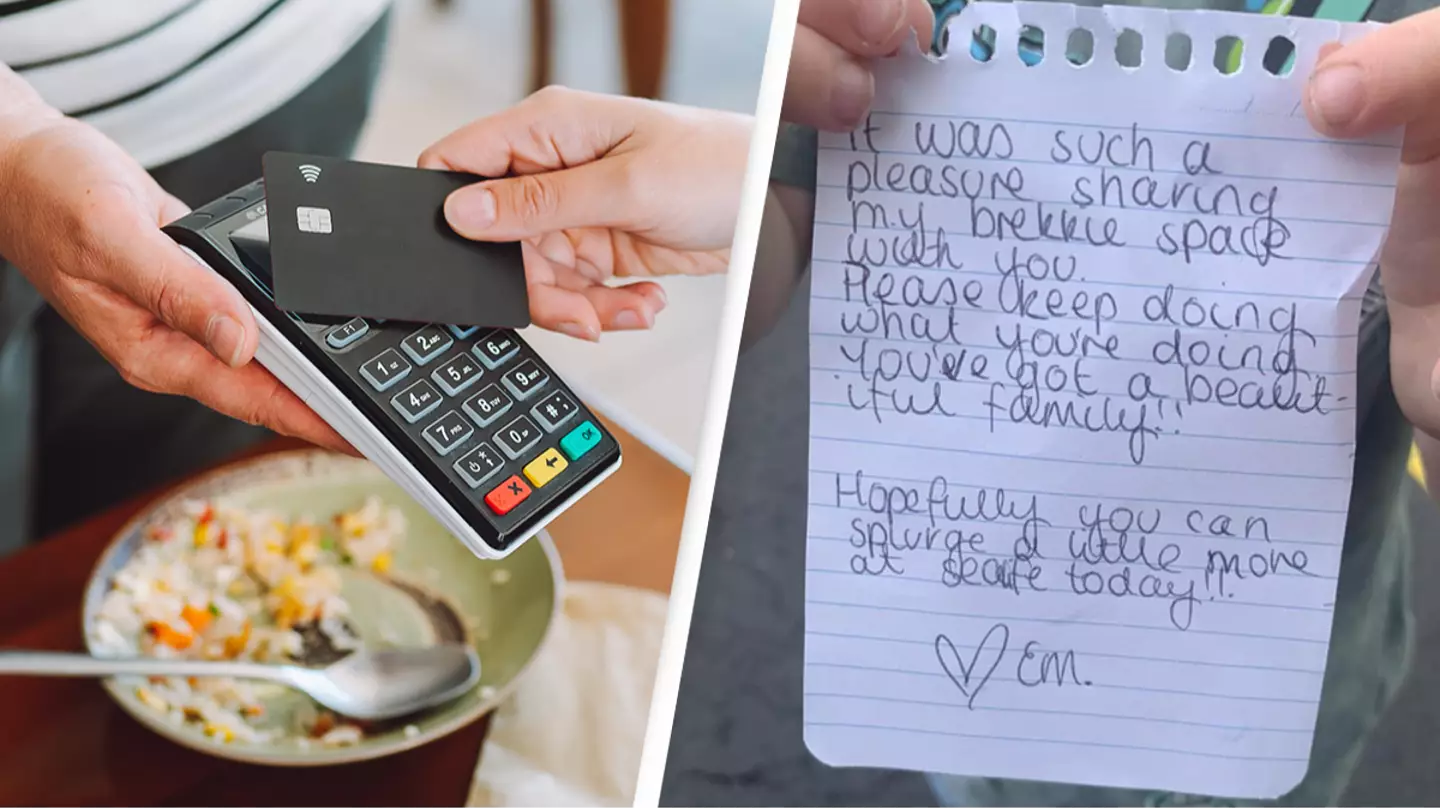 F1
1
2 ABC
4
5
6
7
8
9
0
#
OK
It was such a
pleasure sharing
my brekkie space
with you.
Please keep doing
what you're doing
You've got a beaut-
iful family!!
Hopefully you can
splurge a little more
at sealife today!!
Em.